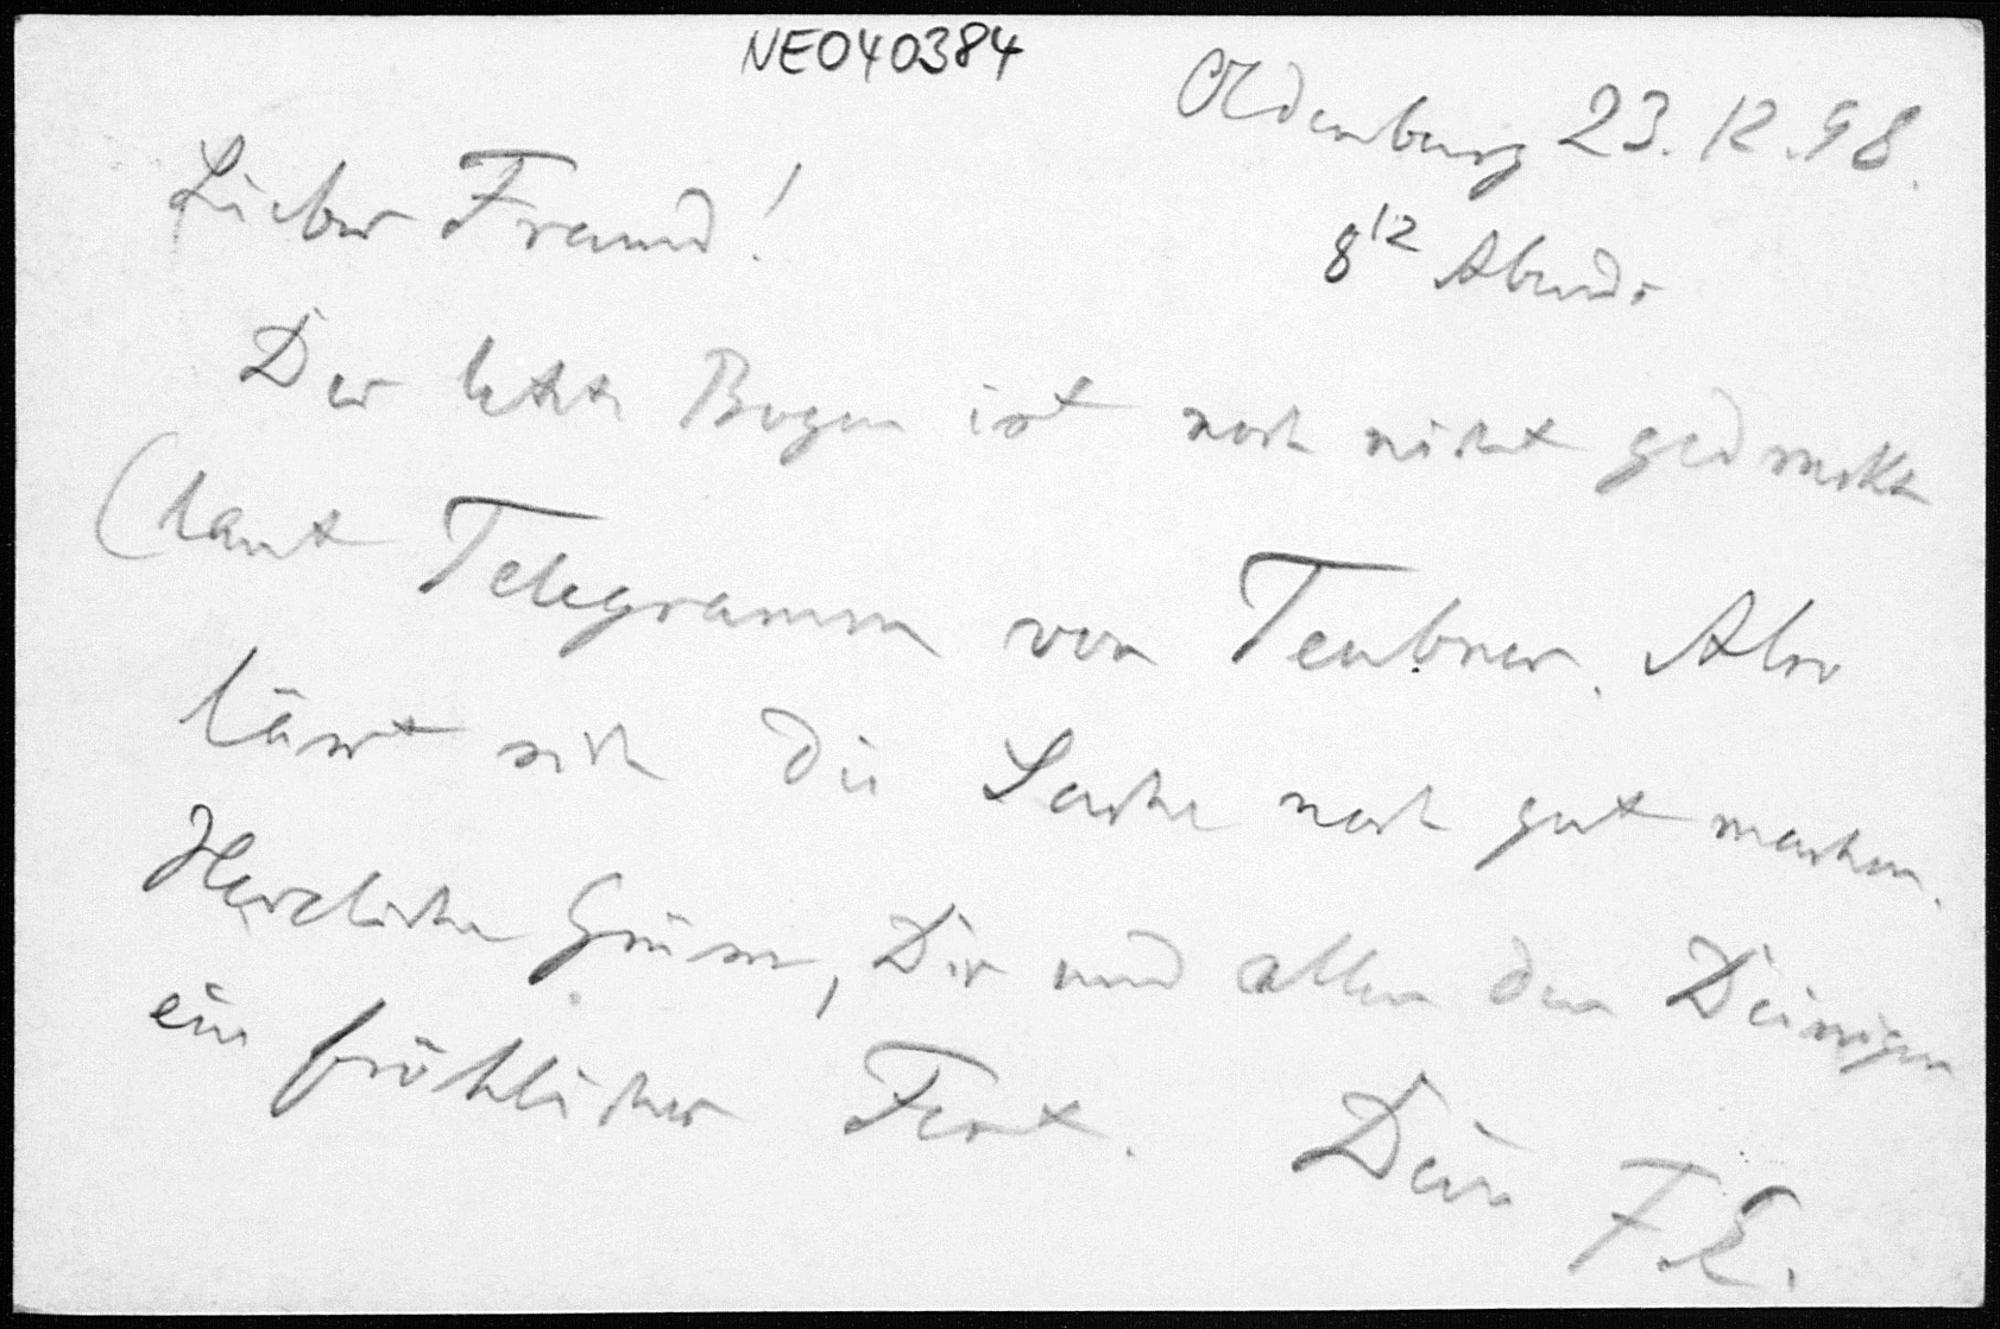 NE040384
Oldenburg 23.12.98.
8¹² Abends
Lieber Freund!
Der letzte Bogen ist noch nicht gedruckt
(laut Telegramm von Teubner. Also
lässt sich die Sache noch gut machen.
Herzliche Grüsse, Dir und allen den Deinigen
ein fröhliches Fest. Dein F.E.